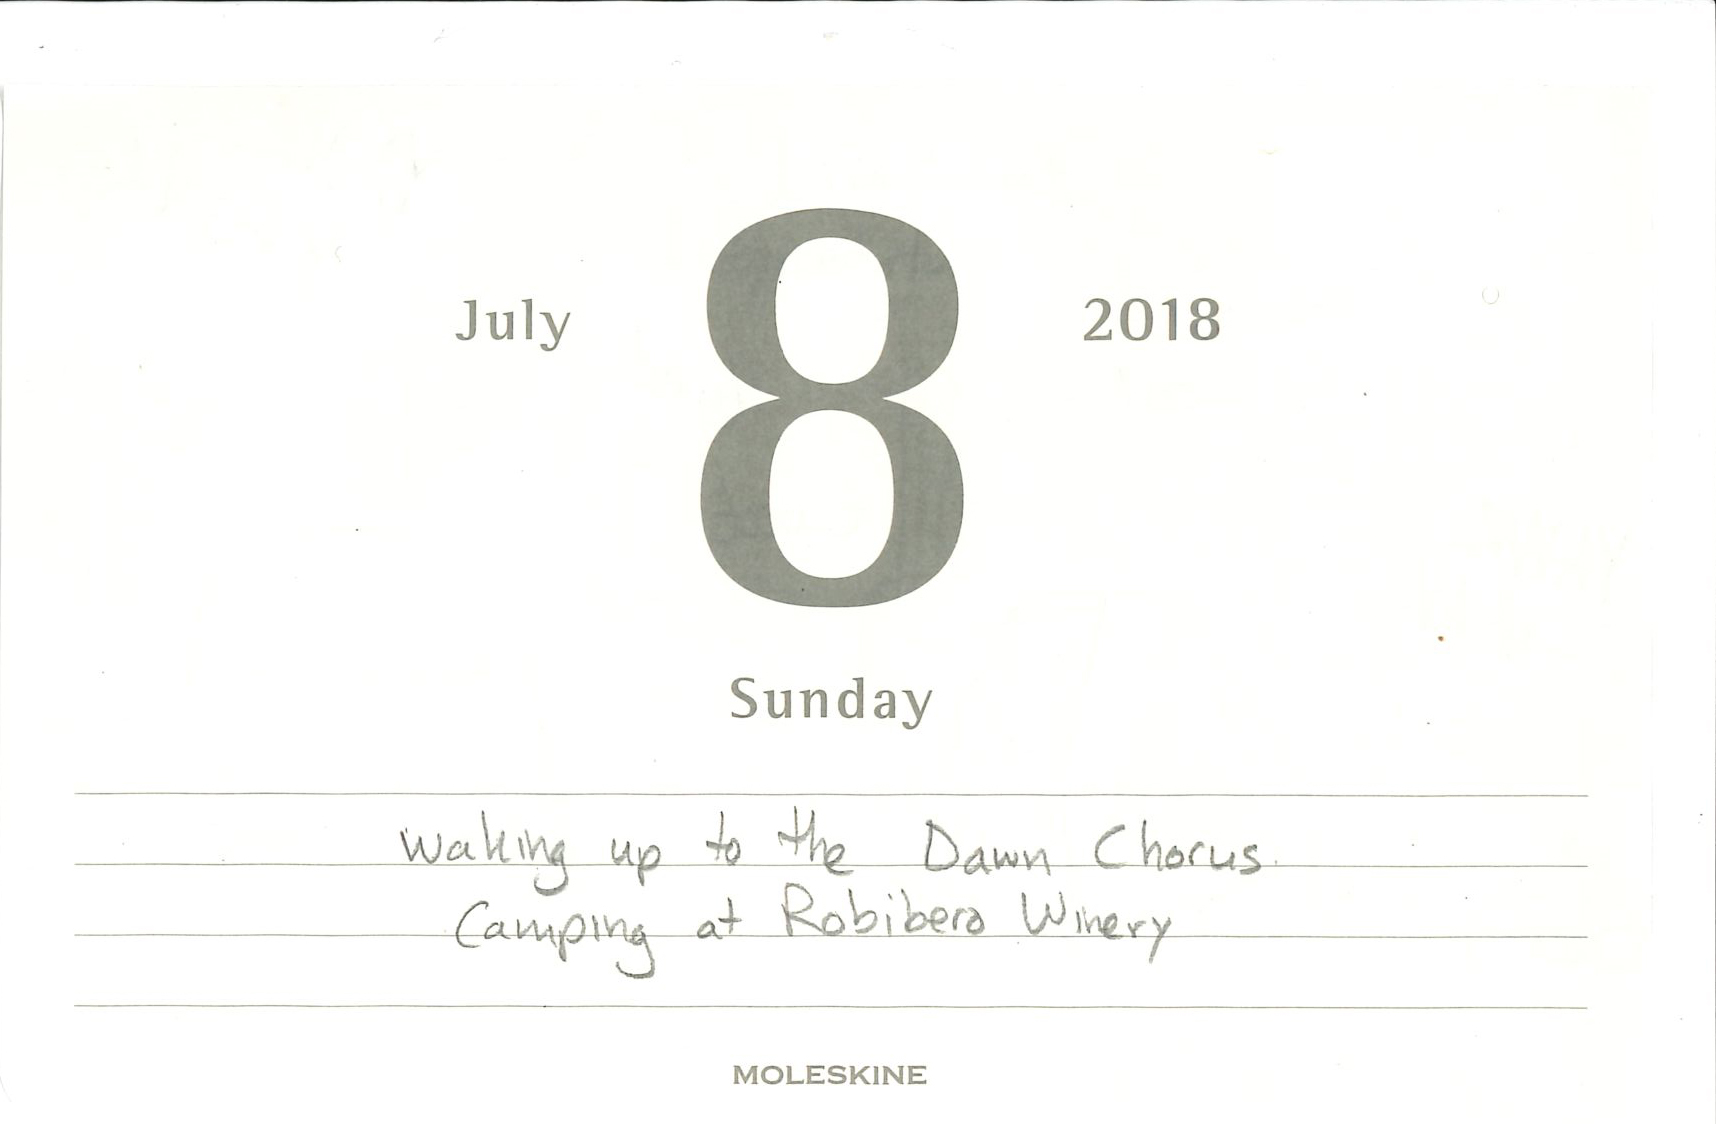 July 8 2018
Sunday
Waking up to the Dawn Chorus.
Camping at Robibero Winery
MOLESKINE